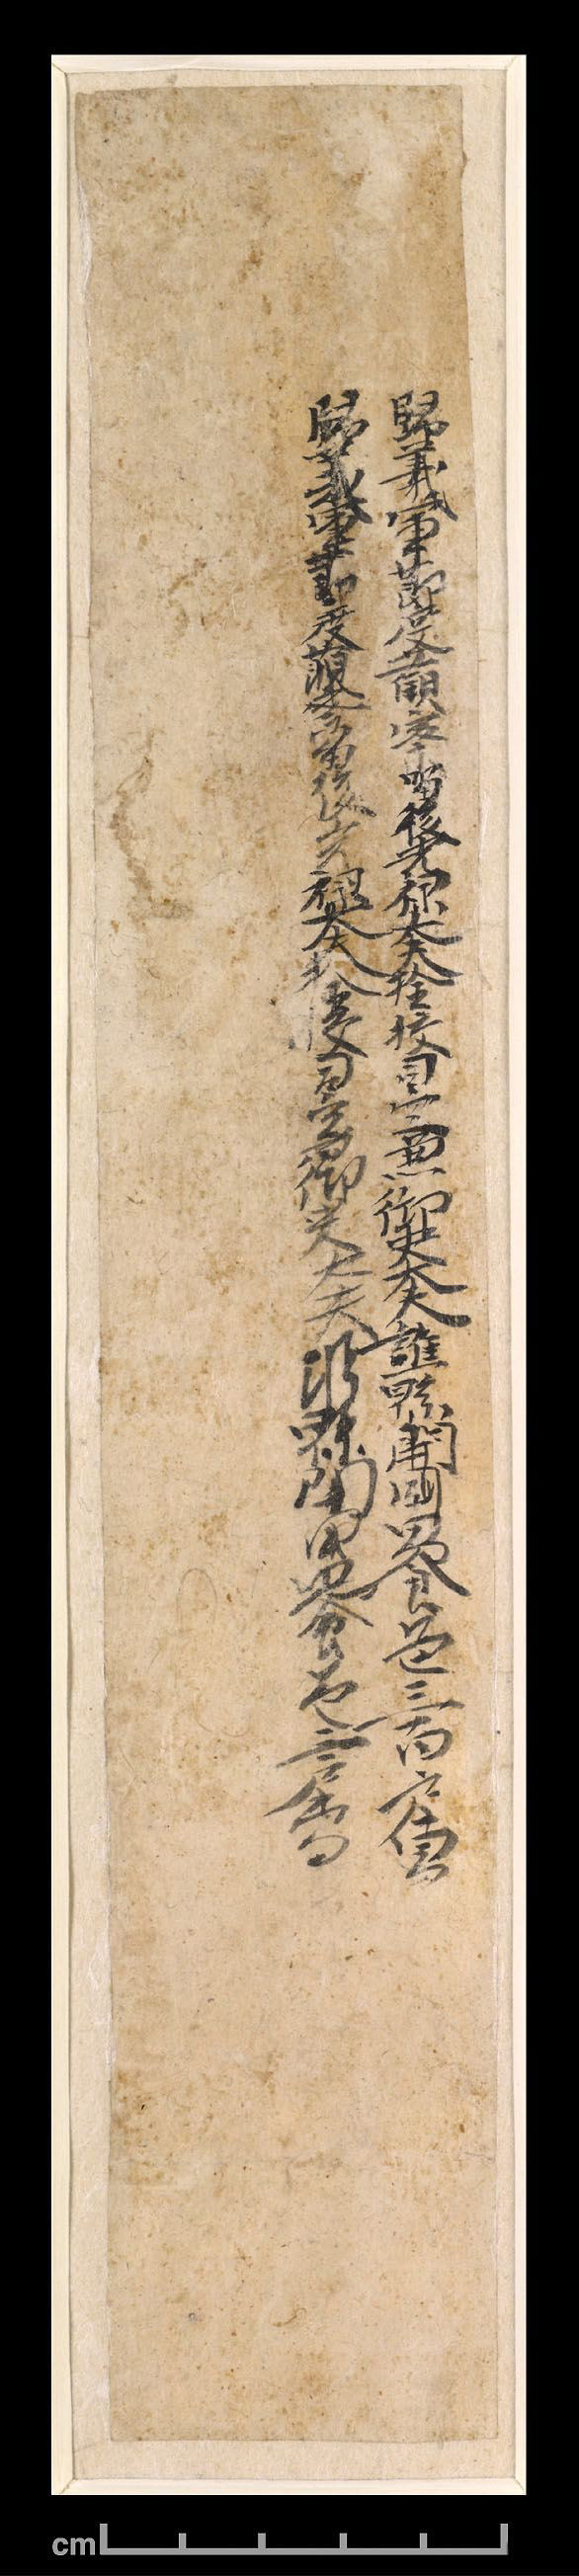 歸義軍節度觀察留後光祿大夫檢校司空兼御史大夫譙縣開國男食邑三百户
歸義軍節度觀察留後光祿大夫檢校司空御史大夫譙縣開國男食邑三
cm